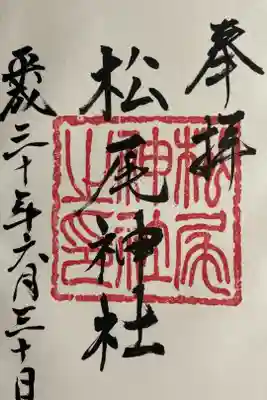 奉拝
松尾神社
松尾神社之印
平成三十年六月三十日